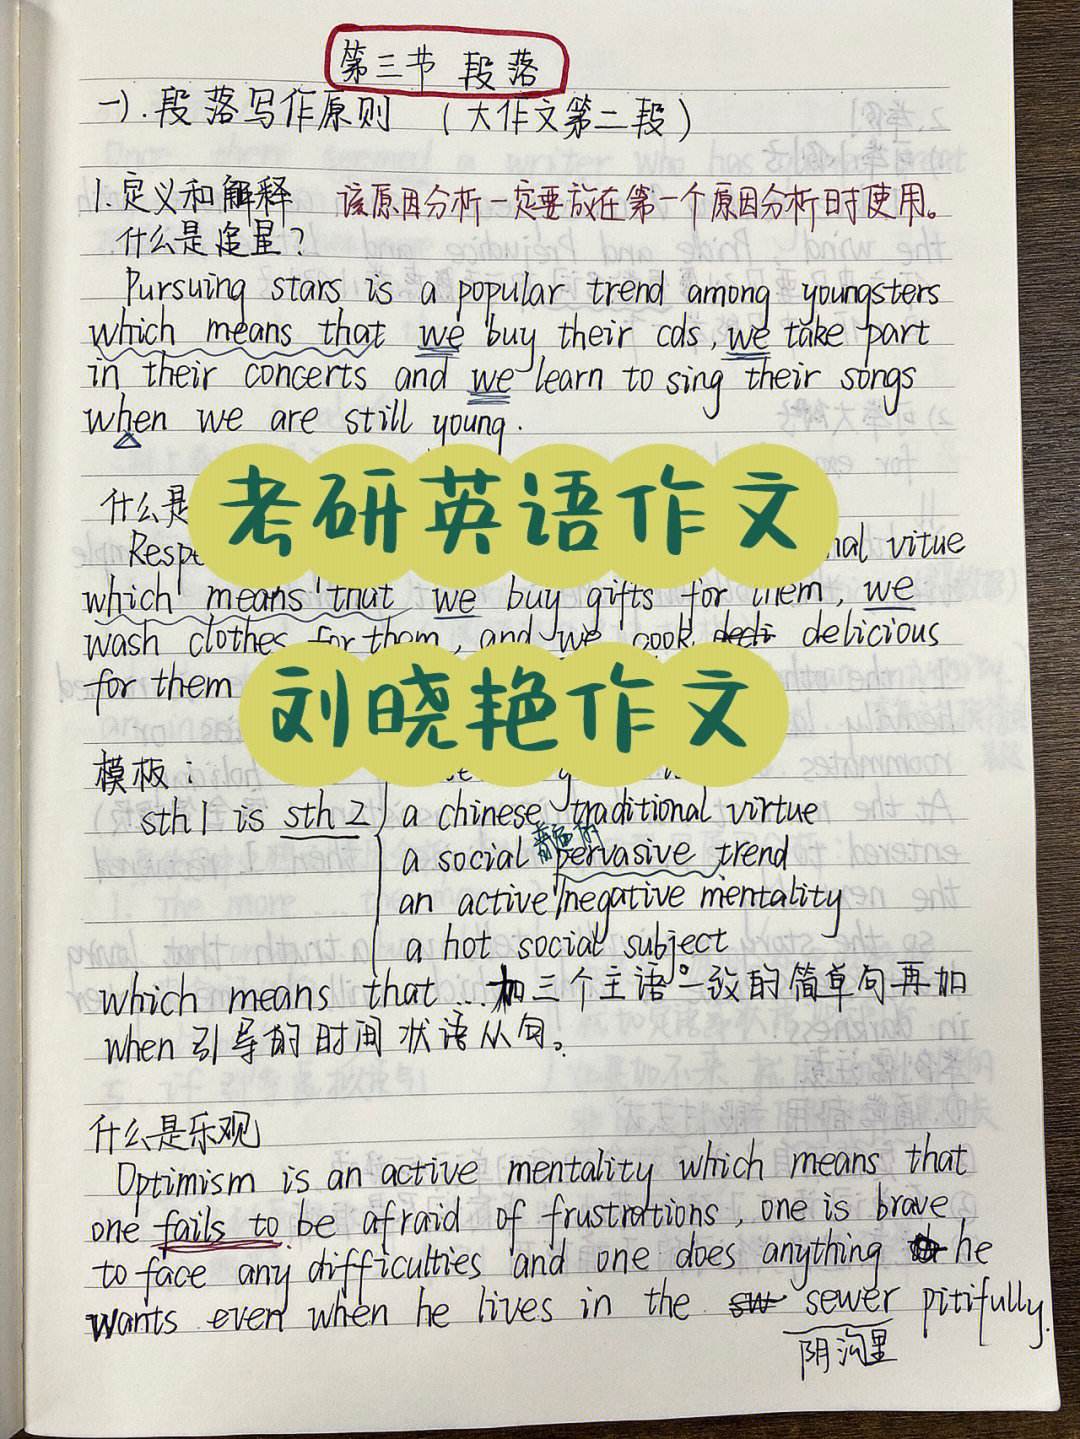 第三节 段落
一). 段落写作原则 (大作文第二段)
1. 定义和解释 该原因分析一定要放在第一个原因分析时使用。
什么是追星?
Pursuing stars is a popular trend among youngsters
which means that we buy their cds, we take part
in their concerts and we learn to sing their songs
when we are still young.
考研英语作文
什么是
Respe nal vitue
which means that we buy gifts for them, we
wash clothes for them, and we cook delicious
for them
刘晓艳作文
模板:
sth 1 is sth 2 a chinese traditional virtue
普遍的
a social pervasive trend
an active/negative mentality
a hot social subject
which means that ... 加三个主语一致的简单句再加
when 引导的时间状语从句。
什么是乐观
Optimism is an active mentality which means that
one fails to be afraid of frustrations, one is brave
to face any difficulties and one does anything he
wants even when he lives in the sewer pitifully.
阴沟里